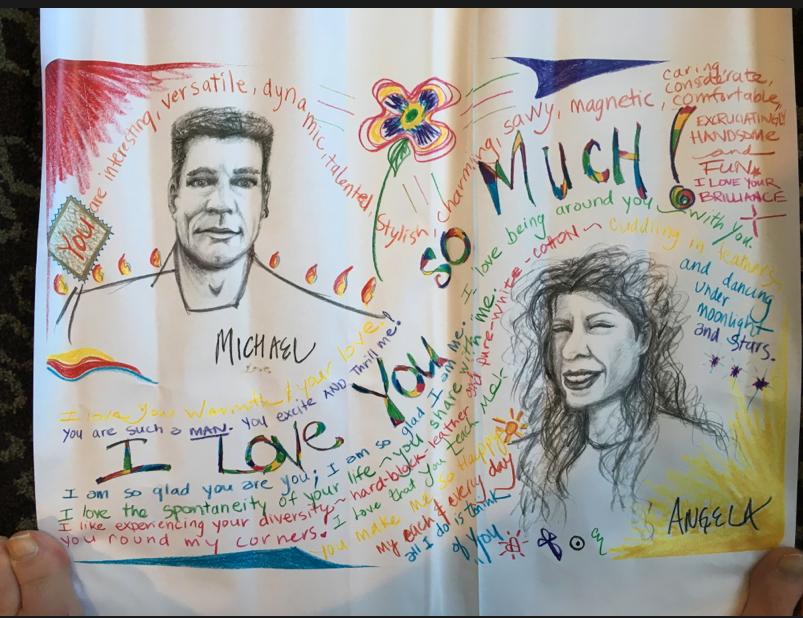 You are interesting, versatile, dynamic, talented, stylish, charming, savvy, magnetic, comfortable,
caring,
considerate,
EXCRUCIATINGLY
HANDSOME
and
FUN.
I LOVE YOUR
BRILLIANCE
MICHAEL
I love your warmth & your love.
You are such a MAN. You excite AND Thrill me!
I LOVE YOU SO MUCH!
I am so glad you are you; I am so glad I am me. I love being around you - with you.
I love the spontaneity of your life ~ you share with me.
I like experiencing your diversity ~ hard-block-leather and pure-white-coton ~ cuddling in feathers,
and dancing
under
moonlight
and stars.
you round my corners. I love that you teach me.
you make me so Happy
my each & every day
all I do is think
of you
ANGELA